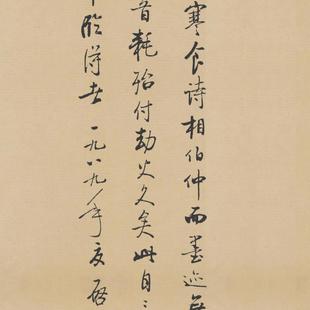 寒食诗相伯仲而墨迹無
音耗殆付劫火久矣此自
临得者一九八九年夏启